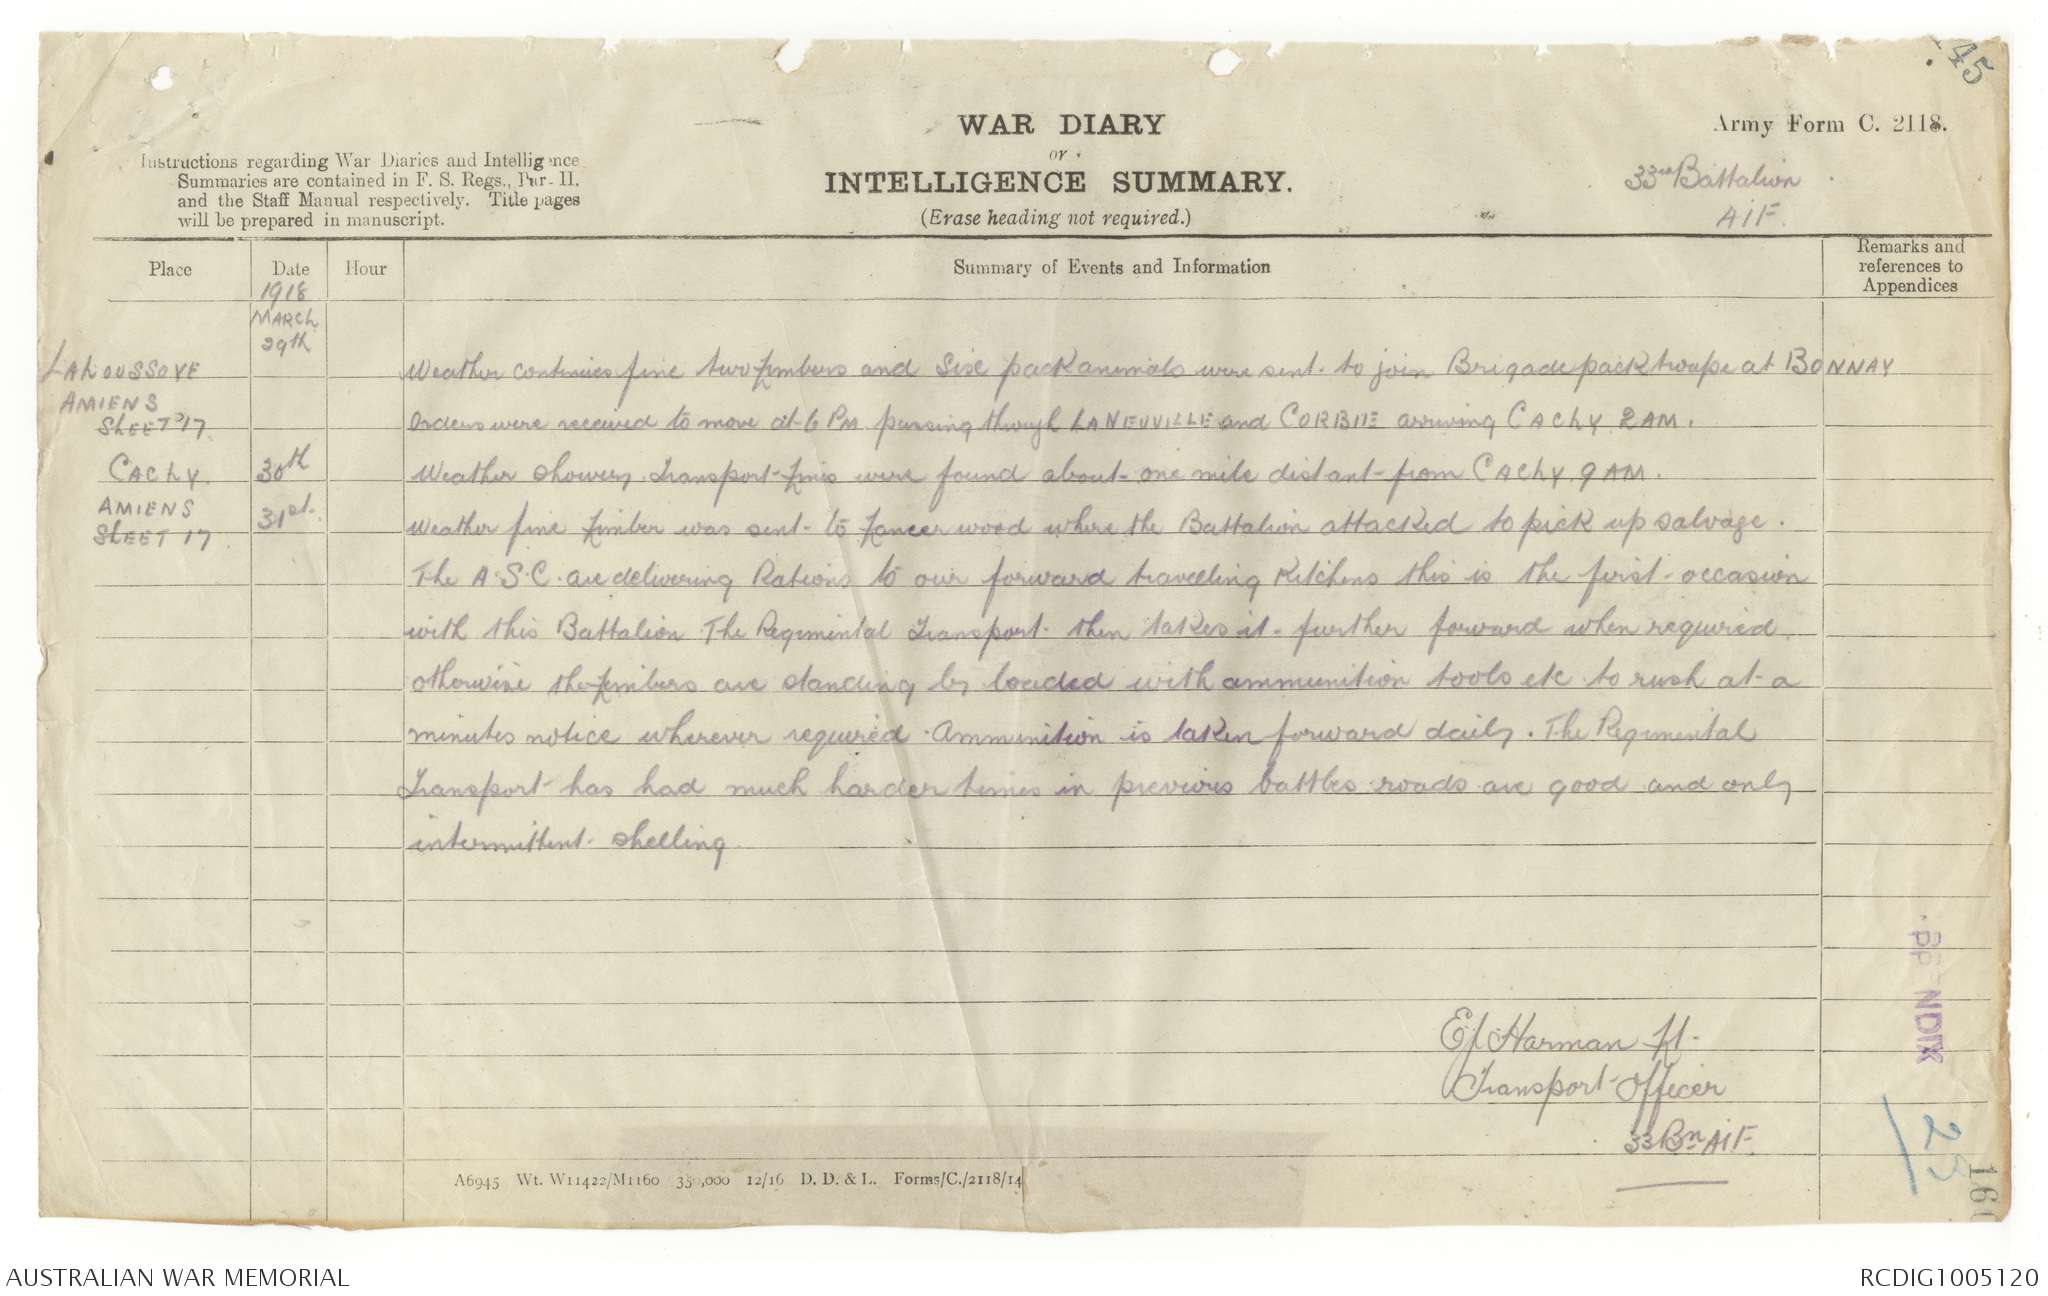 145
WAR DIARY
or
INTELLIGENCE SUMMARY.
(Erase heading not required.)
Army Form C. 2118.
33rd Battalion
AIF.
Instructions regarding War Diaries and Intelligence
Summaries are contained in F. S. Regs., Part II.
and the Staff Manual respectively. Title pages
will be prepared in manuscript.
Place
Date
Hour
Summary of Events and Information
Remarks and
references to
Appendices
1918
MARCh
29th
LAhOUSSOYE
AMIENS
ShEET 17
Weather continues fine two Limbers and Sise pack animals were sent to join Brigade pack troupe at BONNAY
Orders were received to move at 6 PM passing through LANEUVILLE and CORBIE arriving CAChY 2AM.
CAChY
30th
Weather showery Transport Lines were found about one mile distant from CAChY 9AM.
AMIENS
ShEET 17
31st
Weather fine Limber was sent to Lancer wood where the Battalion attacked to pick up salvage.
The A.S.C. are delivering Rations to our forward travelling Kitchens this is the first occasion
with this Battalion The Regimental Transport then takes it further forward when required
otherwise the Limbers are standing by loaded with ammunition tools etc to rush at a
minutes notice wherever required. Ammunition is taken forward daily. The Regimental
Transport has had much harder times in previous battles roads are good and only
intermittent shelling
EJ Harman Lt
Transport Officer
33 Bn AIF
APPENDIX
23
160
A6945 Wt. W11422/M1160 350,000 12/16 D. D. & L. Forms/C./2118/14
AUSTRALIAN WAR MEMORIAL
RCDIG1005120